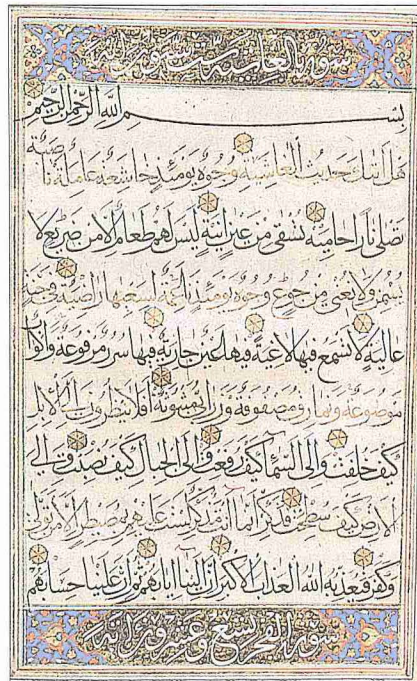 سورة الغاشية ست وعشرون آية
بسم الله الرحمن الرحيم
هل اتيك حديث الغاشية وجوه يومئذ خاشعة عاملة ناصبة
تصلى نارا حامية تسقى من عين انية ليس لهم طعام الا من ضريع لا
يسمن ولا يغنى من جوع وجوه يومئذ ناعمة لسعيها راضية فى جنة
عالية لا تسمع فيها لاغية فيها عين جارية فيها سرر مرفوعة واكواب
موضوعة ونمارق مصفوفة وزرابى مبثوثة افلا ينظرون الى الابل
كيف خلقت والى السماء كيف رفعت والى الجبال كيف نصبت والى
الارض كيف سطحت فذكر انما انت مذكر لست عليهم بمصيطر الا من تولى
وكفر فيعذبه الله العذاب الاكبر ان الينا ايابهم ثم ان علينا حسابهم
سورة الفجر تسع وعشرون آية